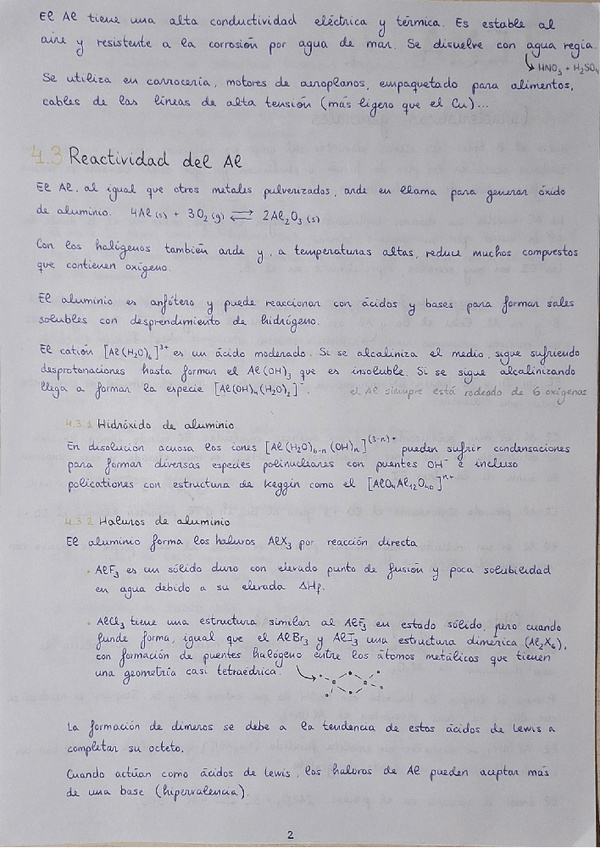 El Al tiene una alta conductividad eléctrica y térmica. Es estable al
aire y resistente a la corrosión por agua de mar. Se disuelve con agua regia.
HNO₃ + H₂SO₄
Se utiliza en carrocería, motores de aeroplanos, empaquetado para alimentos,
cables de las líneas de alta tensión (más ligero que el Cu)...
4.3 Reactividad del Al
El Al, al igual que otros metales pulverizados, arde en llama para generar óxido
de aluminio. 4Al (s) + 3O₂ (g) ⇄ 2Al₂O₃ (s)
Con los halógenos también arde y, a temperaturas altas, reduce muchos compuestos
que contienen oxígeno.
El aluminio es anfótero y puede reaccionar con ácidos y bases para formar sales
solubles con desprendimiento de hidrógeno.
El catión [Al(H₂O)₆]³⁺ es un ácido moderado. Si se alcaliniza el medio, sigue sufriendo
desprotonaciones hasta formar el Al(OH)₃ que es insoluble. Si se sigue alcalinizando
llega a formar la especie [Al(OH)₄(H₂O)₂]⁻. el Al siempre está rodeado de 6 oxígenos
4.3.1 Hidróxido de aluminio
En disolución acuosa los iones [Al(H₂O)₆₋ₙ(OH)ₙ]⁽³⁻ⁿ⁾⁺ pueden sufrir condensaciones
para formar diversas especies polinucleares con puentes OH⁻ e incluso
policationes con estructura de Keggin como el [AlO₄Al₁₂O₄₀]ⁿ⁺
4.3.2 Haluros de aluminio
El aluminio forma los haluros AlX₃ por reacción directa
• AlF₃ es un sólido duro con elevado punto de fusión y poca solubilidad
en agua debido a su elevada ΔHf.
• AlCl₃ tiene una estructura similar al AlF₃ en estado sólido, pero cuando
funde forma, igual que el AlBr₃ y AlI₃ una estructura dimérica (Al₂X₆),
con formación de puentes halógeno entre los átomos metálicos que tienen
una geometría casi tetraédrica.
La formación de dímeros se debe a la tendencia de estos ácidos de Lewis a
completar su octeto.
Cuando actúan como ácidos de Lewis, los haluros de Al pueden aceptar más
de una base (hipervalencia).
2